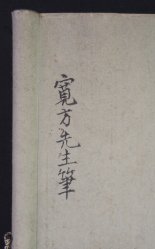 寛方先生筆